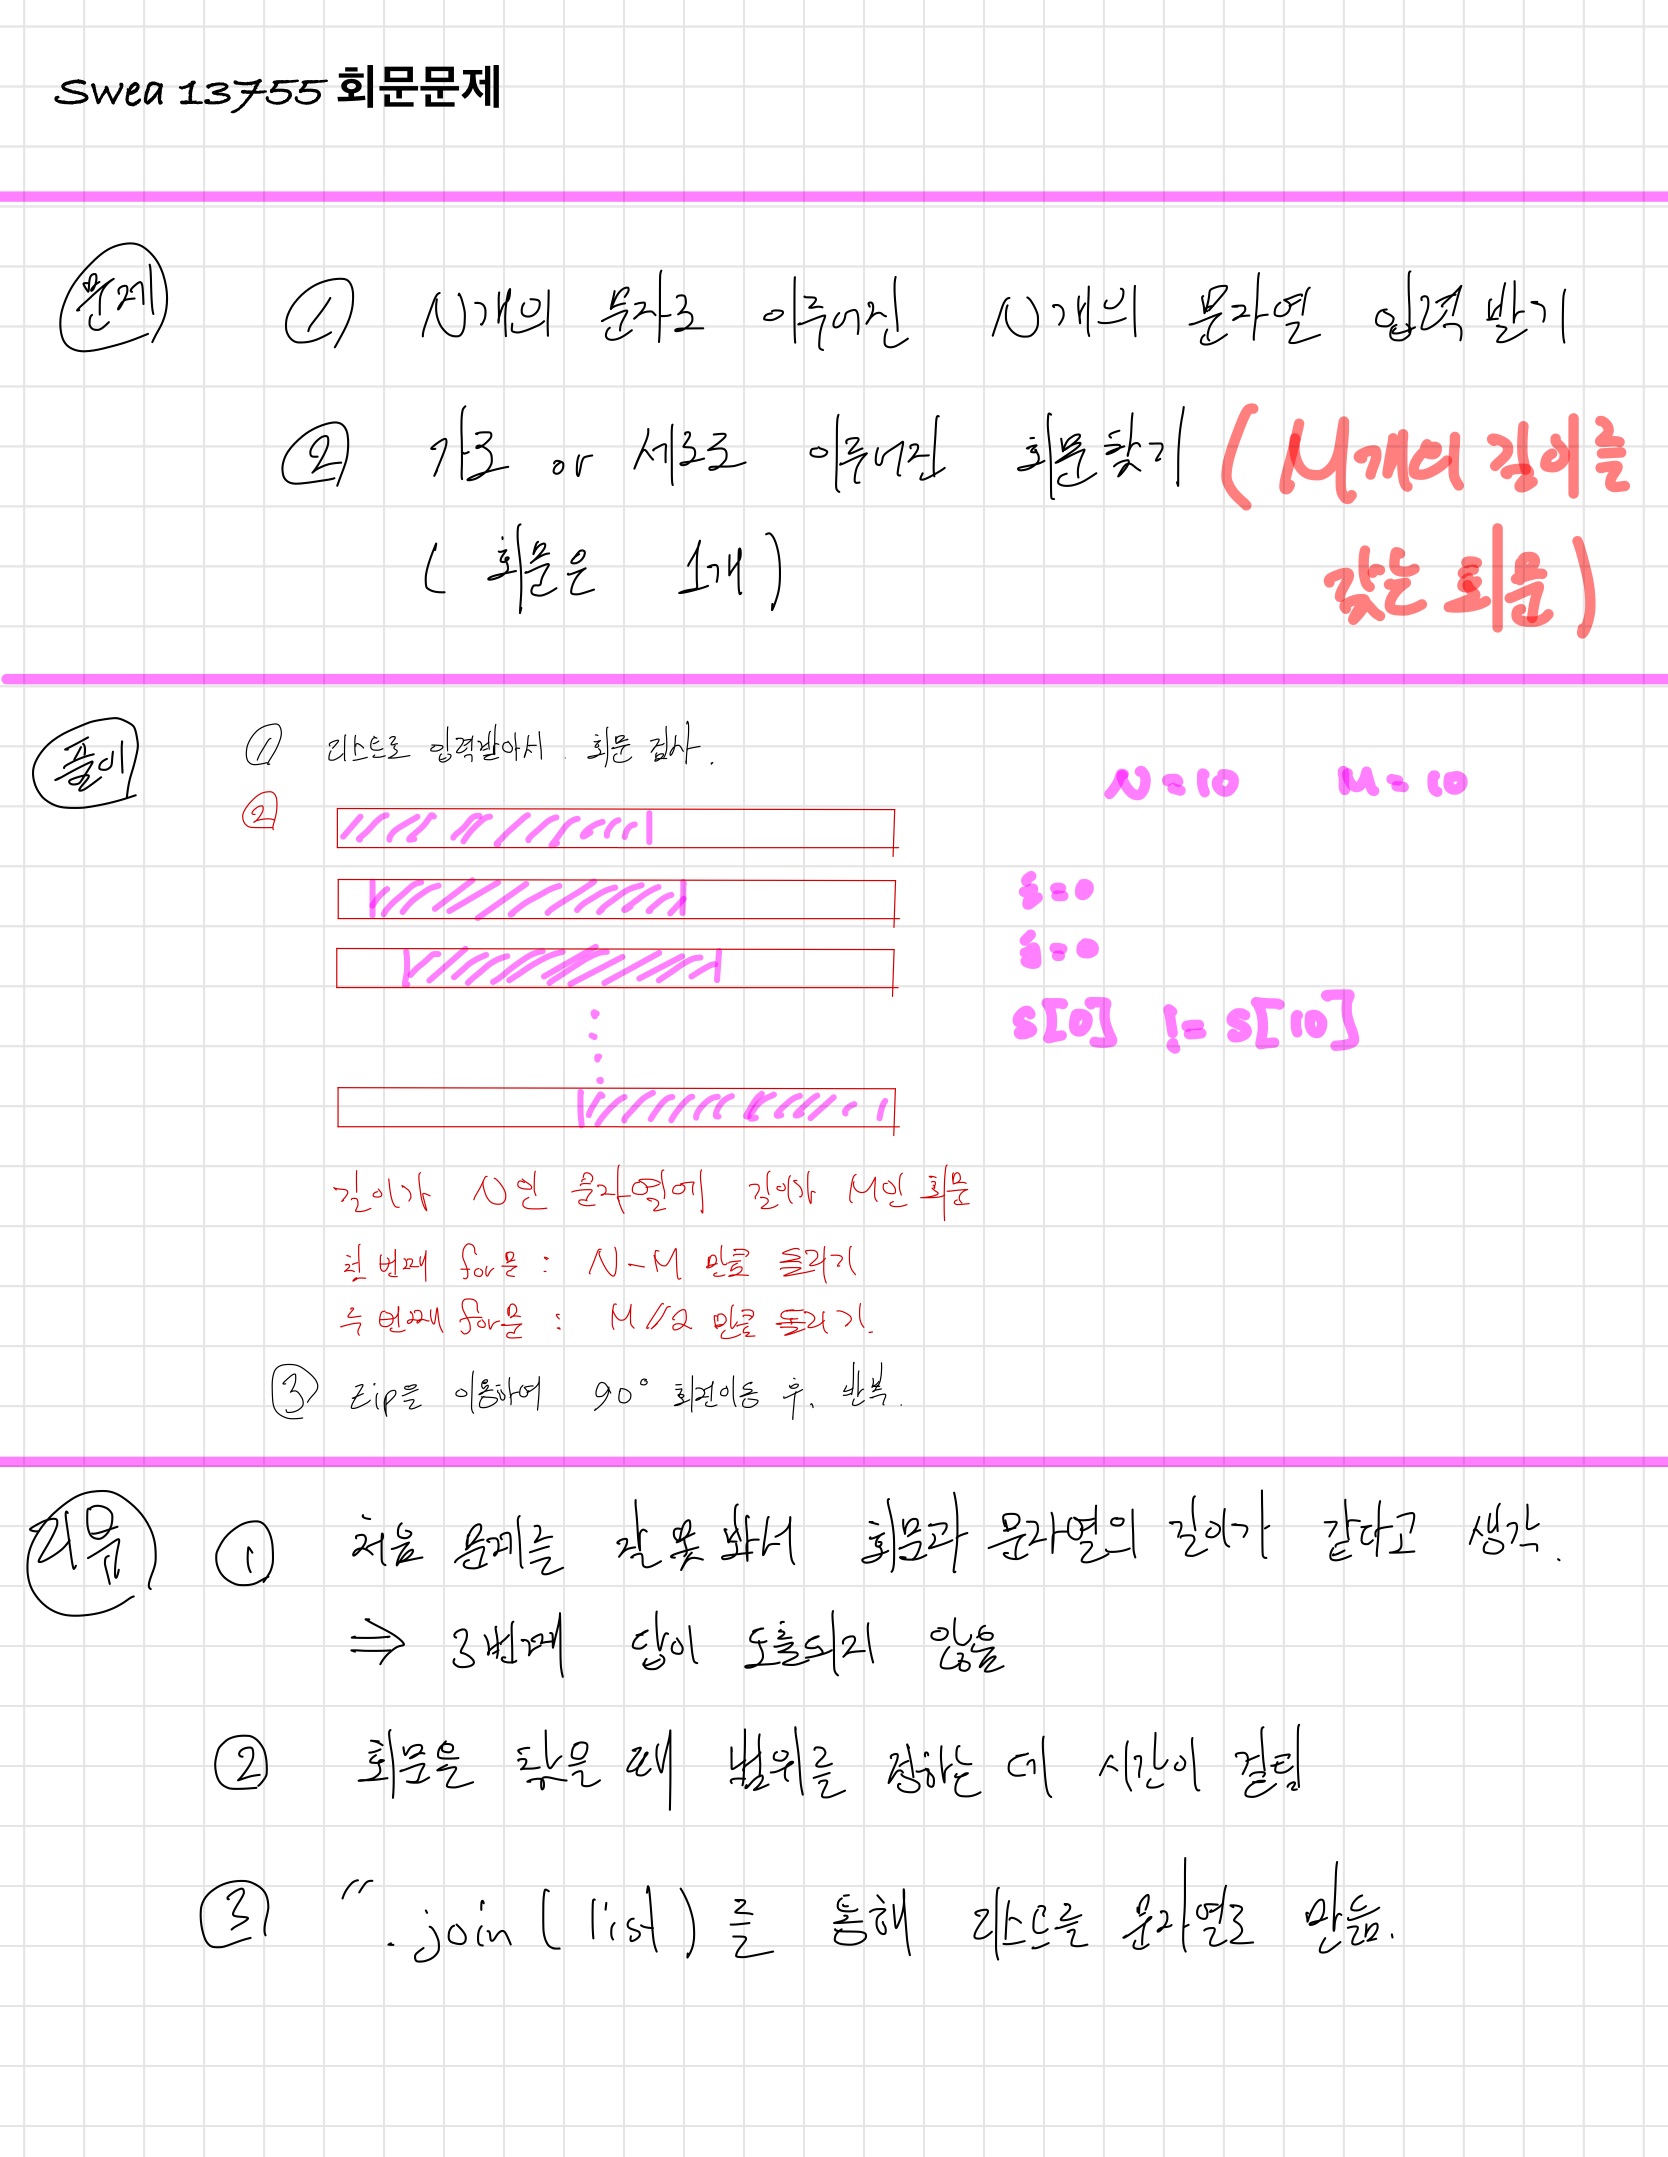 Swea 13755 회문문제
문제 ① N개의 문자로 이루어진 N개의 문자열 입력 받기
② 가로 or 세로로 이루어진 회문 찾기 (M개의 길이를
갖는 회문)
(회문은 1개)
풀이 ① 리스트로 입력받아서. 회문 검사.
N=10 M=10
②
i=0
j=0
s[0] != s[10]
길이가 N인 문자열에 길이가 M인 회문
첫 번째 for문 : N-M 만큼 돌리기
두 번째 for문 : M//2 만큼 돌리기.
③ zip을 이용하여 90° 회전이동 후, 반복.
리뷰 ① 처음 문제를 잘 못 봐서 회문과 문자열의 길이가 같다고 생각.
⇒ 3번째 답이 도출되지 않음
② 회문을 찾을 때 범위를 정하는 데 시간이 걸림
③ ".join(list)를 통해 리스트를 문자열로 만듦.